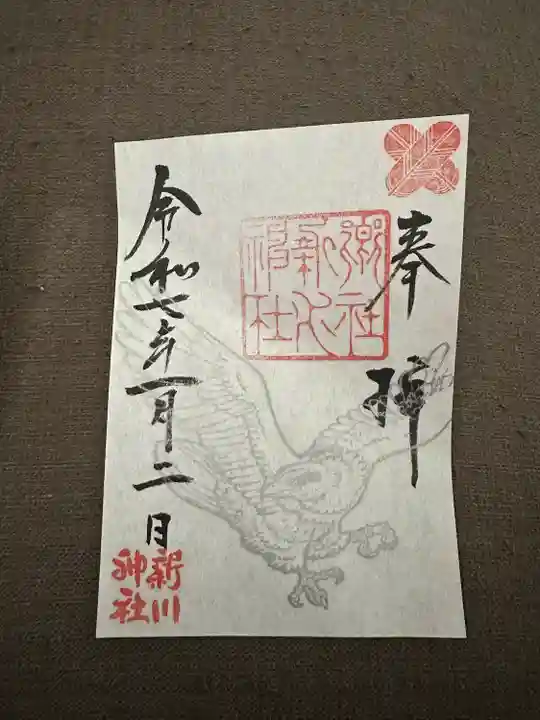 奉拝
郷社
新川
神社
令和七年一月二日
新川
神社